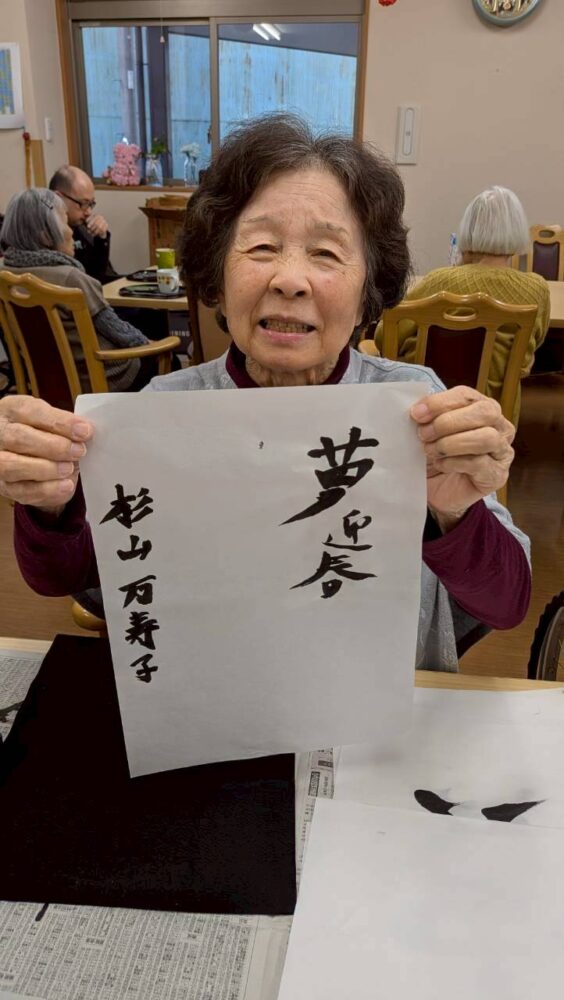 夢
迎春
杉山万寿子